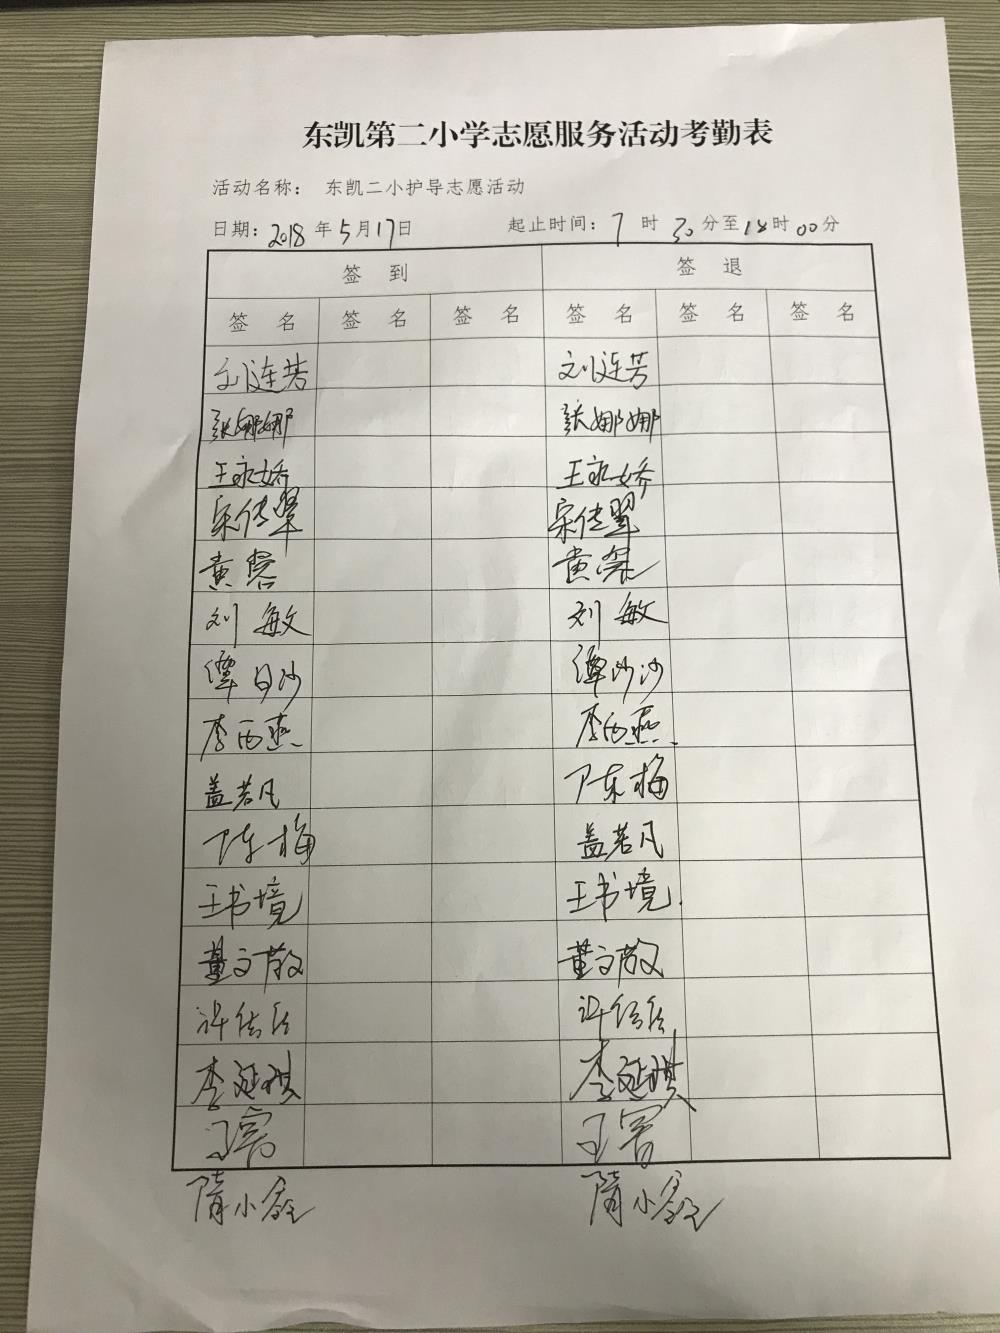 东凯第二小学志愿服务活动考勤表
活动名称： 东凯二小护导志愿活动
日期：2018年5月17日 起止时间：7时30分至18时00分
签 到 签 退
签 名 签 名 签 名 签 名 签 名 签 名
刘连芳 刘连芳
张娜娜 张娜娜
王永娇 王永娇
宋传翠 宋传翠
黄 黄
刘敏 刘敏
谭 谭沙沙
李西燕 李西燕
盖若凡 陈梅
陈梅 盖若凡
王书境 王书境
董文敬 董文敬
许 许
李延琪 李延琪
王 王
隋小鑫 隋小鑫